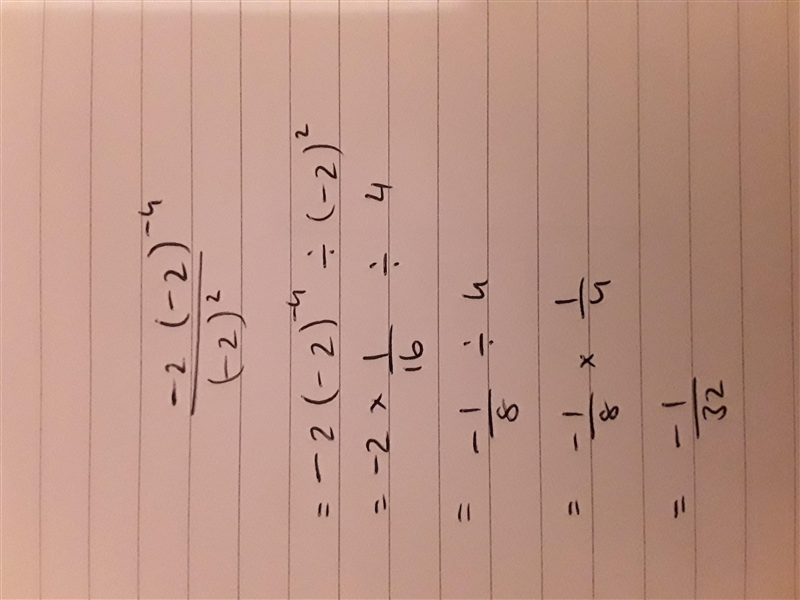 -2(-2)^-4 / (-2)^2
= -2(-2)^-4 ÷ (-2)^2
= -2 × 1/16 ÷ 4
= -1/8 ÷ 4
= -1/8 × 1/4
= -1/32